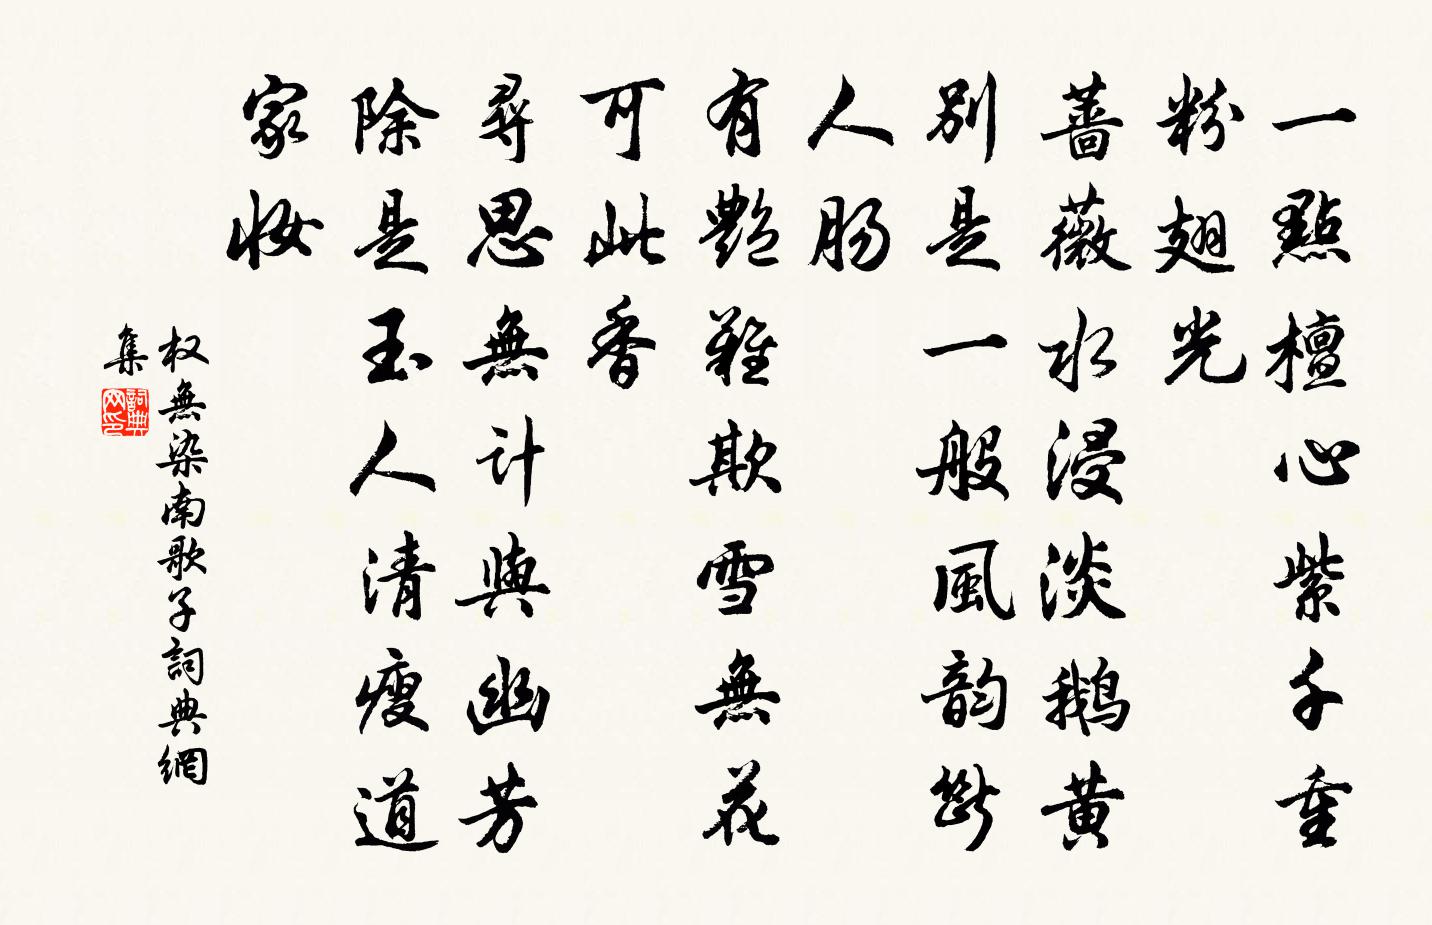 一點檀心紫千重
粉翅光
薔薇水浸淡鵝黃
別是一般風韵斷
人腸
有艷難欺雪無花
可此香
尋思無计與幽芳
除是玉人清瘦道
家妝
权無染南歌子詞典網
集
詞典
网印